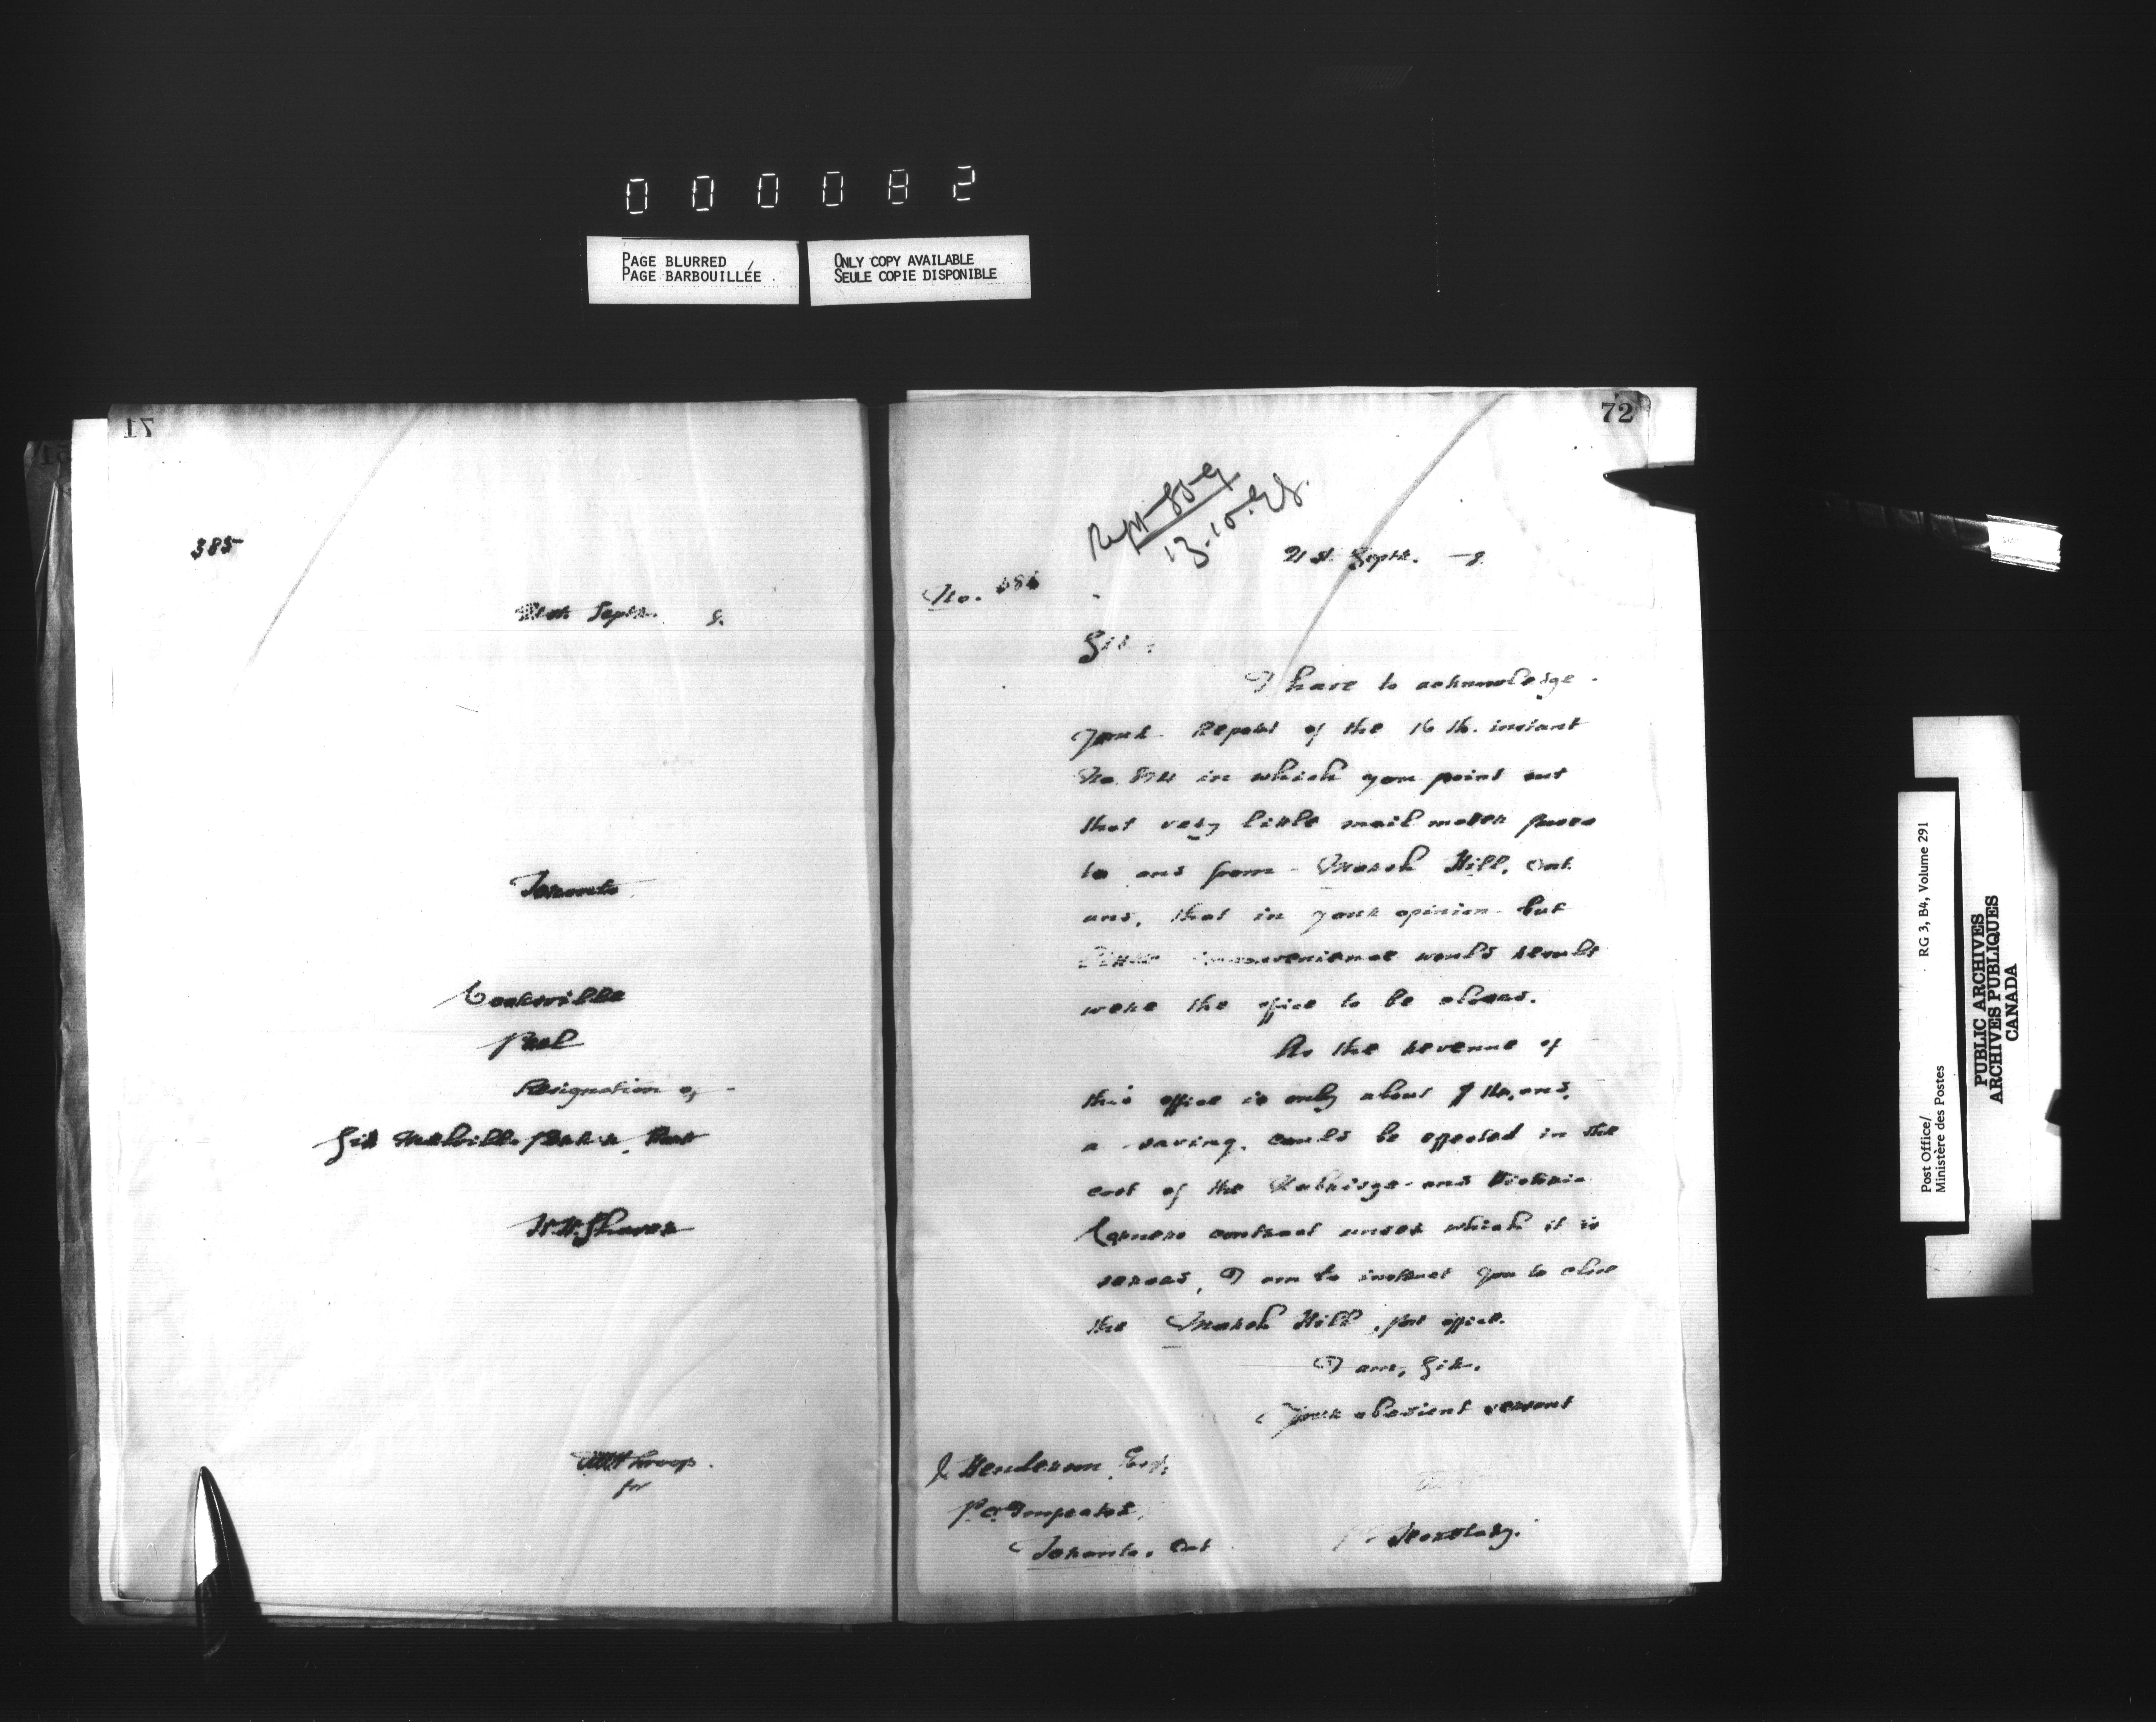 000082
PAGE BLURRED
PAGE BARBOUILLÉE
ONLY COPY AVAILABLE
SEULE COPIE DISPONIBLE
17
385
21st Septr. 8.
Toronto
Cooksville
Peel
Resignation of
Sir Melville Parker, Bart
W.H. Shaver
for
72
13.10.98.
21 st. Septr. 8
No.
Sir:
I have to acknowledge
your Report of the 16 th. instant
No. in which you point out
that very little mail matter passes
to and from March Hill, Ont.
and, that in your opinion but
little inconvenience would result
were the office to be closed.
As the revenue of
this office is only about $ and,
a saving could be effected in the
cost of the Uxbridge and Victoria
Corners contract under which it is
served, I am to instruct you to close
the March Hill, post office.
I am, Sir.
Your obedient servant
J Henderson Esq,
P.O. Inspector,
Toronto, Ont
Secretary.
Post Office/ RG 3, B4, Volume 291
Ministère des Postes
PUBLIC ARCHIVES
ARCHIVES PUBLIQUES
CANADA